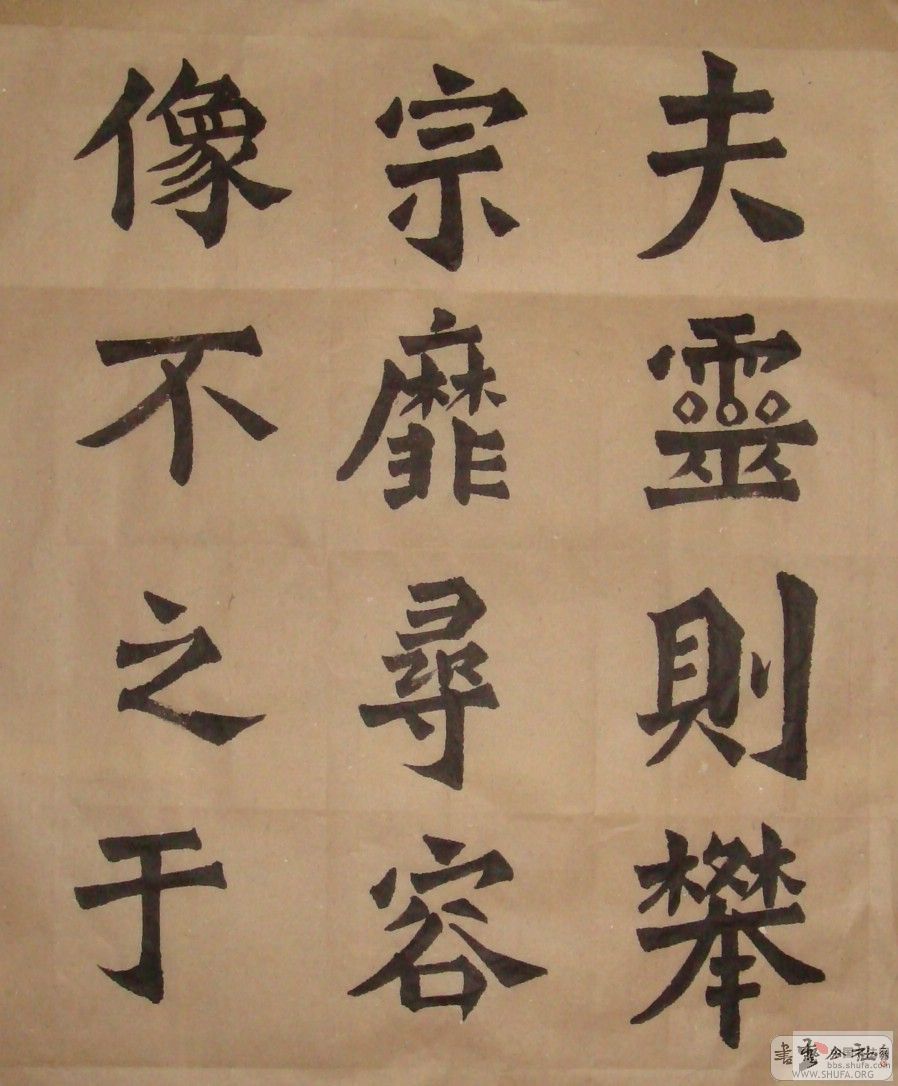 夫靈則攀
宗靡尋容
像不之于
bbs.shufa.com
WWW.SHUFA.ORG